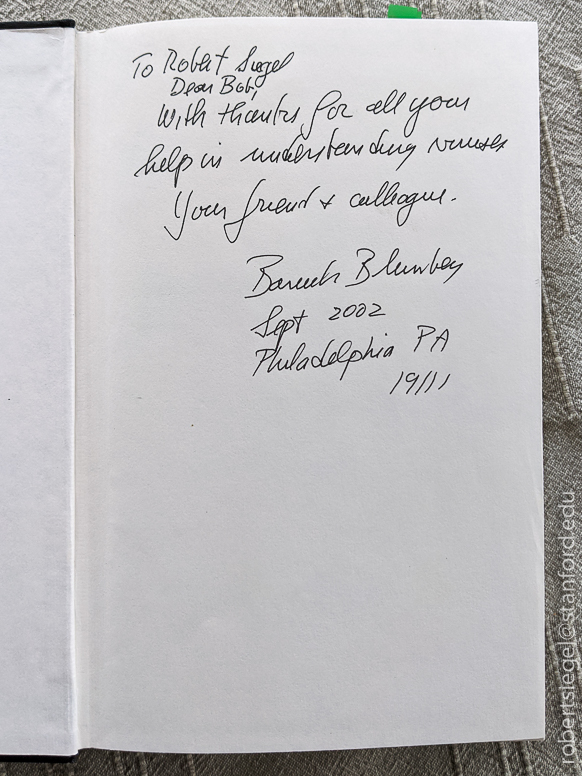 To Robert Siegel
Dear Bob,
With thanks for all your
help in understanding viruses
Your friend + colleague.
Baruch Blumberg
Sept 2002
Philadelphia PA
19111
robertsiegel@stanford.edu